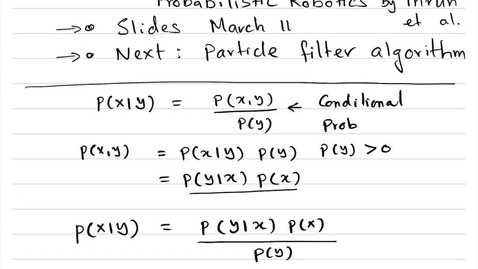 Probabilistic Robotics by Thrun et al.
→ • Slides March 11
→ • Next : Particle filter algorithm
P(x|y) = P(x,y) / P(y) ← Conditional Prob
P(x,y) = P(x|y) P(y) P(y) > 0
= P(y|x) P(x)
P(x|y) = P(y|x) P(x) / P(y)